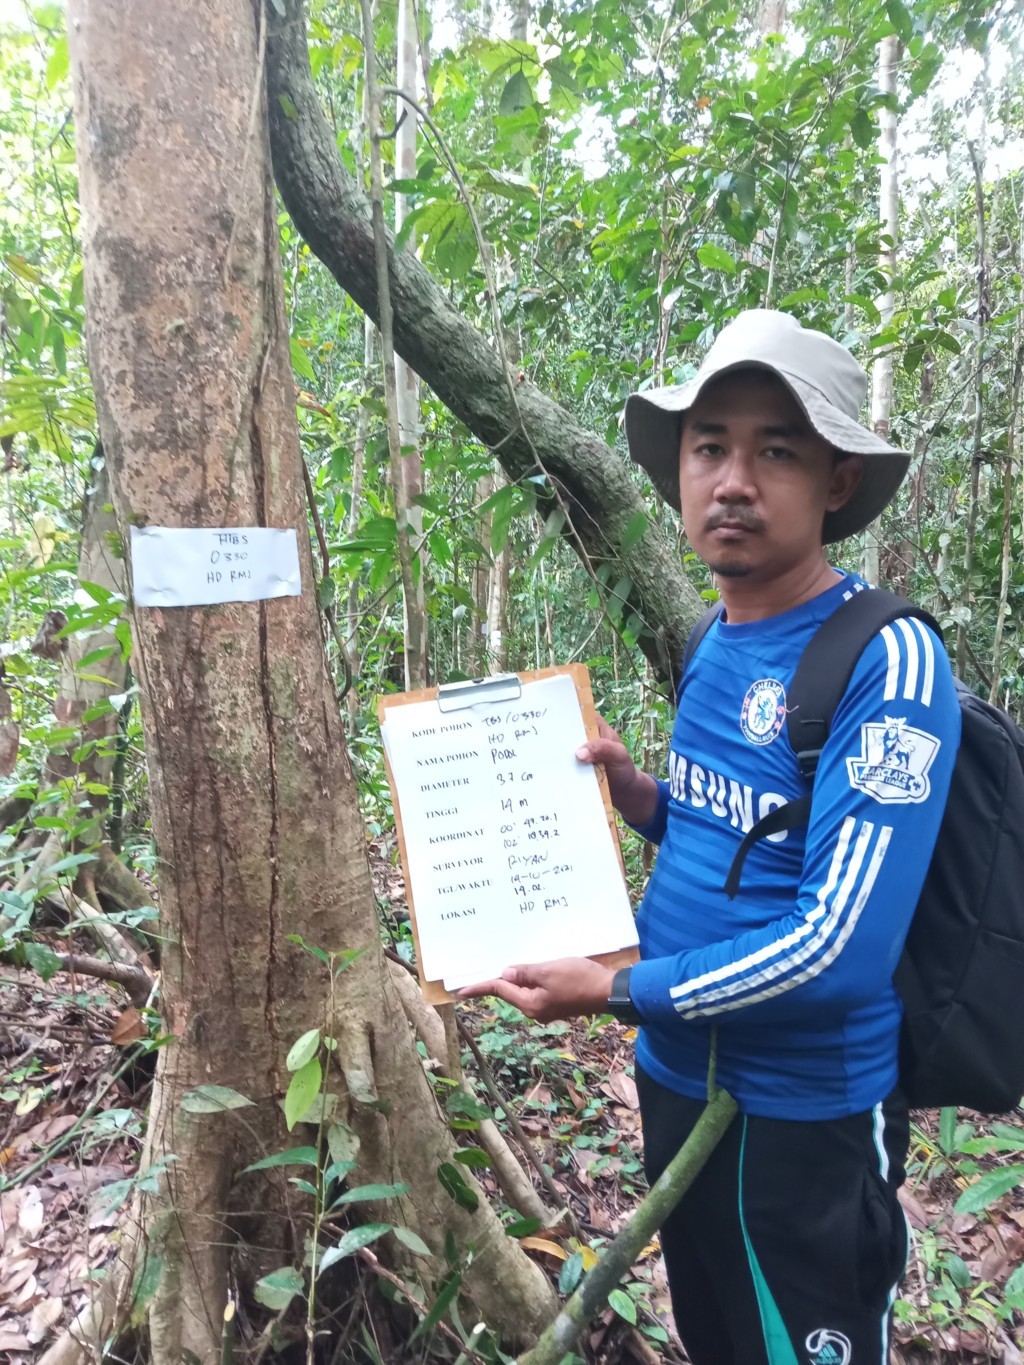 HTBS
0330
HD RMJ
KODE POHON TBS/0330/
HD RMJ
NAMA POHON
DIAMETER 37 cm
TINGGI 14 m
KOORDINAT 00°
102°
SURVEYOR RIYAN
TGL/WAKTU 14-10-2021
14.02.
LOKASI HD RMJ
CHELSEA
FOOTBALL CLUB
MSUNG
BARCLAYS
adidas